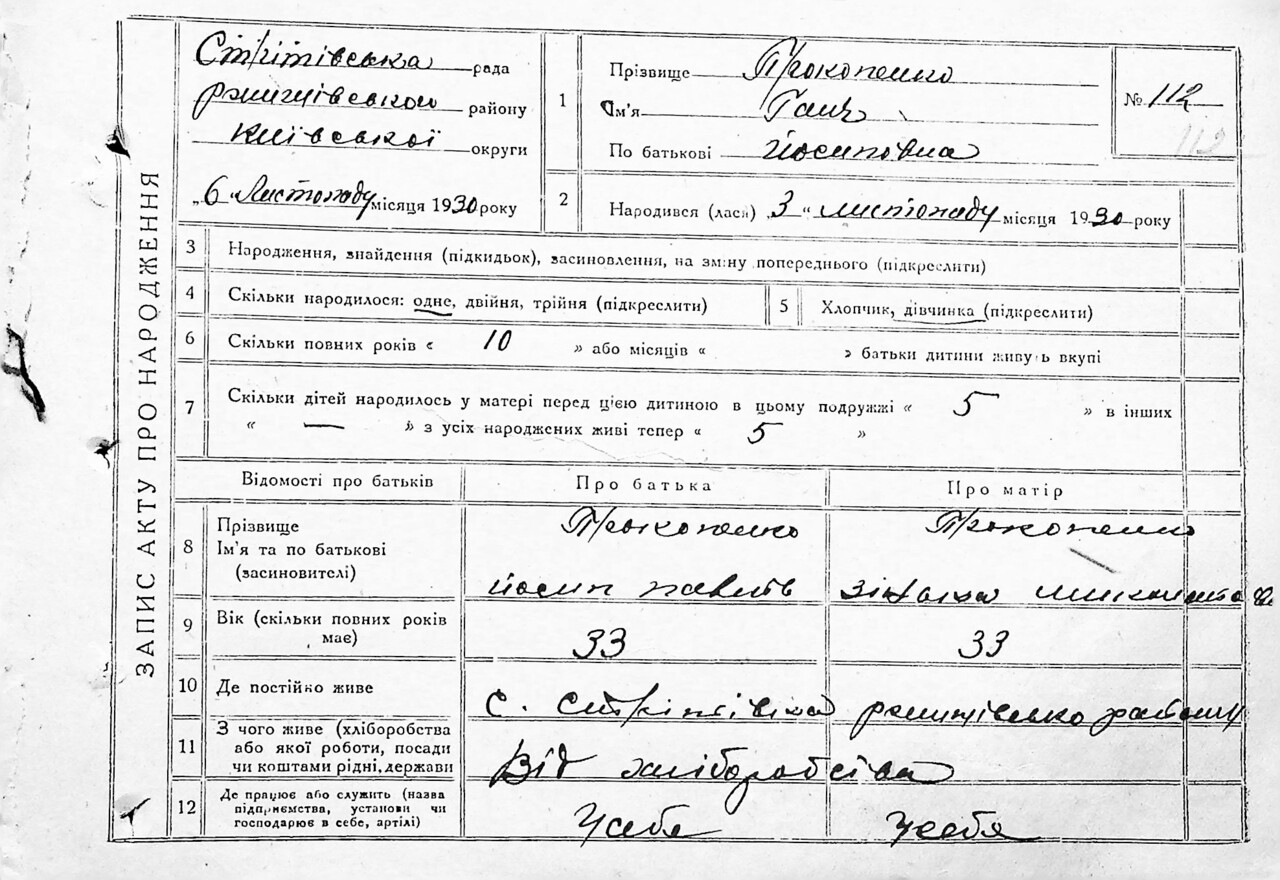 ЗАПИС АКТУ ПРО НАРОДЖЕННЯ
Стрітівська рада
ржищівської району
Київської округи
„6“ Листопаду місяця 1930 року
1
Прізвище Прокопенко
Ім'я Ганн
По батькові Йосиповна
№ 112
112
2
Народився (лася) „3“ листопаду місяця 1930 року
3 Народження, знайдення (підкидьок), засиновлення, на зміну попереднього (підкреслити)
4 Скільки народилося: одне, двійня, трійня (підкреслити)
5 Хлопчик, дівчинка (підкреслити)
6 Скільки повних років « 10 » або місяців « » батьки дитини живуть вкупі
7 Скільки дітей народилось у матері перед цією дитиною в цьому подружжі « 5 » в інших
« — » з усіх народжених живі тепер « 5 »
Відомості про батьків Про батька Про матір
8 Прізвище Прокопенко Прокопенко
Ім'я та по батькові
(засновителі) Йосип
9 Вік (скільки повних років
має) 33 33
10 Де постійно живе С. Стрітівка району
11 З чого живе (хліборобства
або якої роботи, посади
чи коштами рідні, держави Від хліборобства
12 Де працює або служить (назва
підприємства, установи чи
господарює в себе, артілі) Усебя Усебя